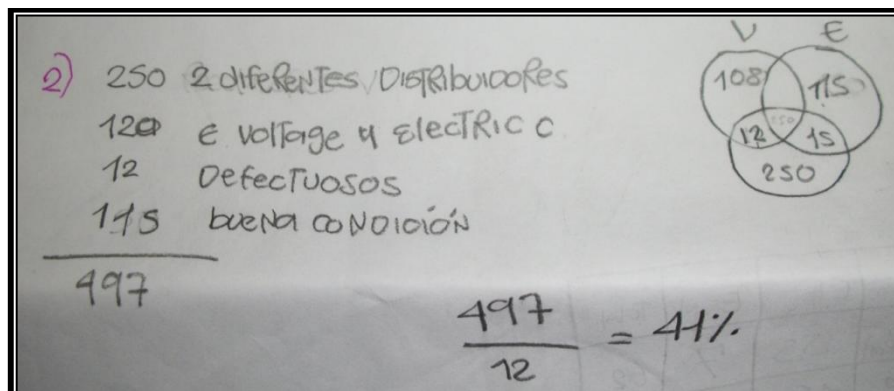 2) 250 2 diferentes DISTRIbuidORes
120 E Voltage y ElecTRIC C
12 DefecTuosos
115 buena condición
497
497 / 12 = 41%
V E
108 115
12 15
250